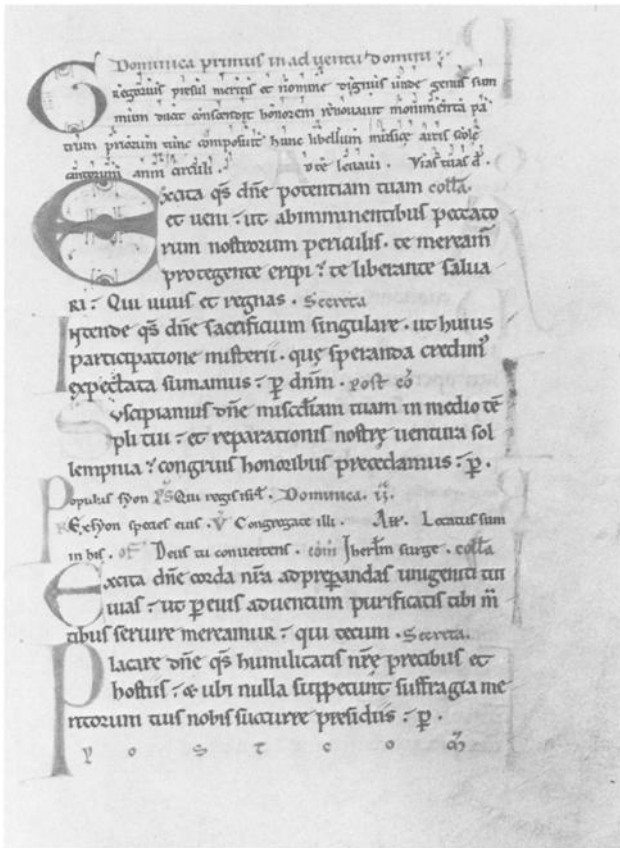 Dominica primus in adventu domini
Gregorius presul meritis et nomine dignus unde genus sum
mium ducit conscendit honorem renovavit monimenta pa
trum priorum tunc composuit hunc libellum musice artis scole
cantorum anni circuli. Ad te levavi. Vias tuas d.
Excita qs dne potentiam tuam colla.
et veni ut abimminentibus peccato
rum nostrorum periculis. te meream̅
protegente eripi te liberante salua
RI: Qui uiuis et regnas. Secreta
Intende qs dne sacrificium singulare. ut huius
participatione misterii. que speranda credim᾽
expectata sumamus: p dnm. post co̅
Suscipiamus dne misc̅diam tuam in medio te̅
pli tui: et reparationis nostrę uentura sol
lempnia congruis honoribus precedamus: p.
Populus syon PS Qui regis isrl. Dominica. II.
R Ex syon species eius. V Congregate illi. All. Letatus sum
in his. of Deus tu convertens. com̅ Iherlm surge. colla
Excita dne corda nr̅a ad preparandas unigeniti tui
uias: ut p eius aduentum purificatis tibi m̅
tibus seruire mereamur: qui tecum. Secreta.
Placare dne qs humilitatis nr̅e precibus et
hostiis: & ubi nulla suppetunt suffragia me
ritorum tuis nobis succurre presidiis: p.
P o s t c o m̅